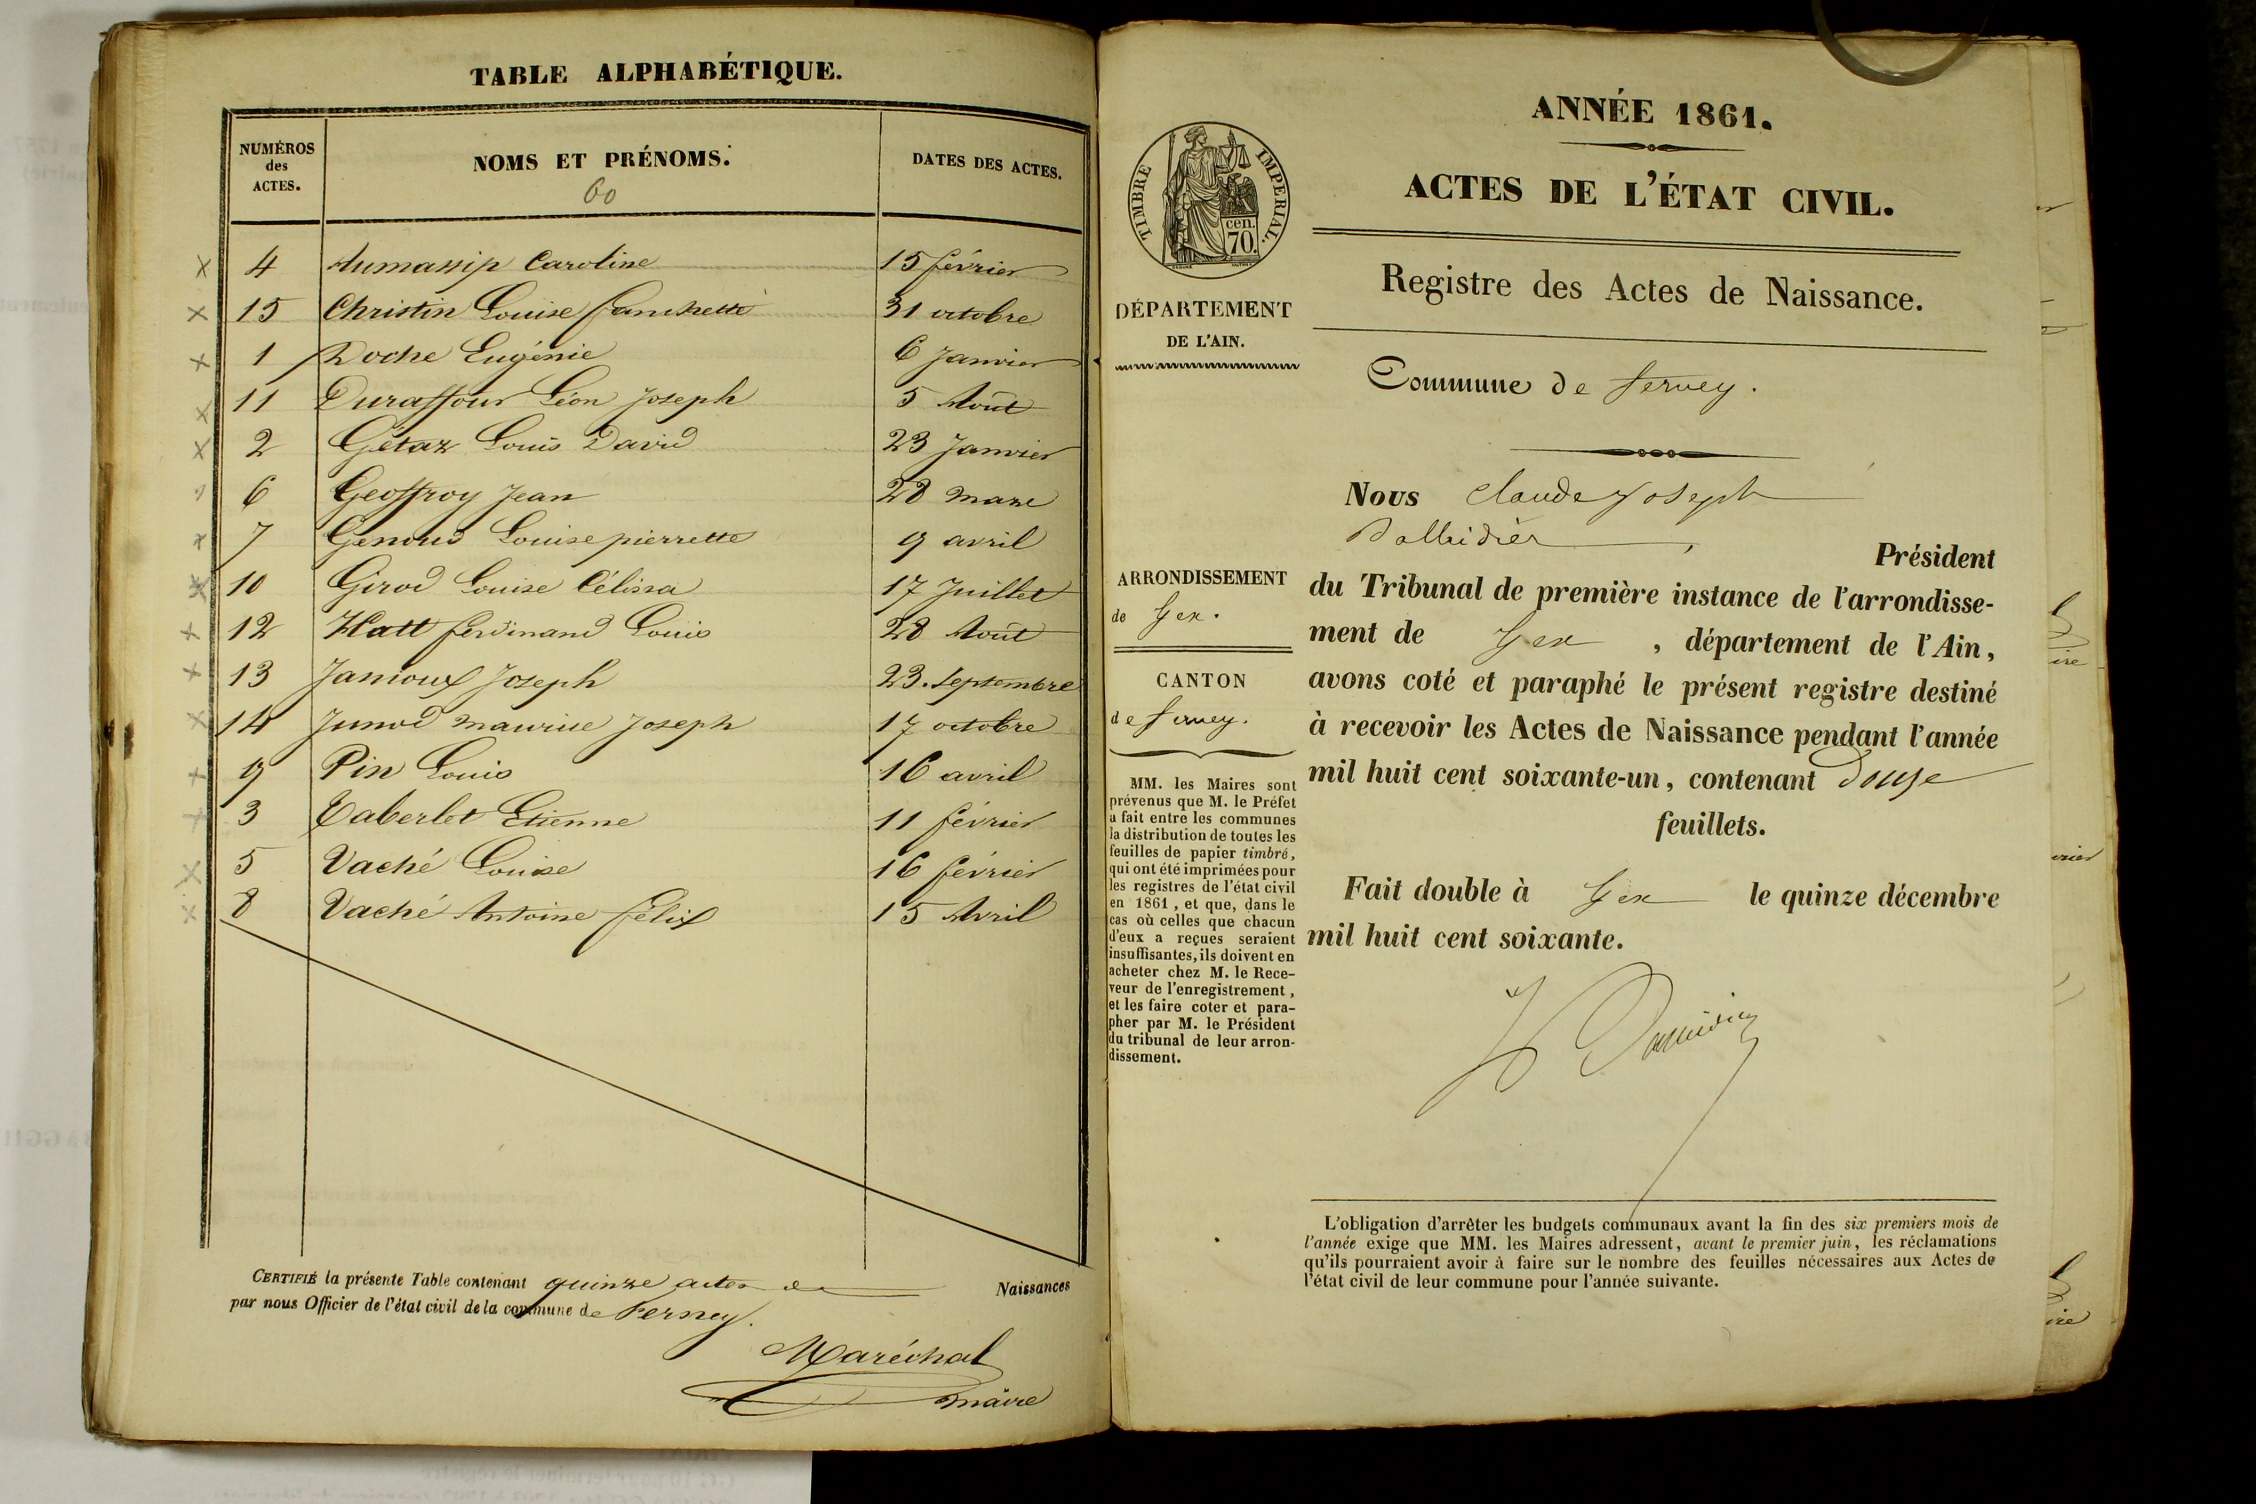 TABLE ALPHABÉTIQUE.
NUMÉROS
des
ACTES.
NOMS ET PRÉNOMS.
60
DATES DES ACTES.
4 Aumassip Caroline 15 février
15 Christin Louise fanchette 31 octobre
1 Doche Eugénie 6 Janvier
11 Duraffour Léon Joseph 5 Août
2 Gétaz Louis David 23 Janvier
6 Geoffroy Jean 28 mars
7 Genoud Louise pierrette 9 avril
10 Girod Louise Célissa 17 Juillet
12 Hatt ferdinand Louis 28 Août
13 Janioux Joseph 23 Septembre
14 Junod maurise Joseph 17 octobre
9 Pin Louis 16 avril
3 Taberlet Etienne 11 février
5 Vaché Louise 16 février
8 Vaché Antoine félix 15 Avril
CERTIFIÉ la présente Table contenant quinze actes de Naissances
par nous Officier de l'état civil de la commune de Ferney.
Maréchal
maire
TIMBRE IMPERIAL.
cen.
70.
DÉPARTEMENT
DE L'AIN.
ARRONDISSEMENT
de Gex.
CANTON
de ferney.
MM. les Maires sont
prévenus que M. le Préfet
a fait entre les communes
la distribution de toutes les
feuilles de papier timbré,
qui ont été imprimées pour
les registres de l'état civil
en 1861, et que, dans le
cas où celles que chacun
d'eux a reçues seraient
insuffisantes, ils doivent en
acheter chez M. le Rece-
veur de l'enregistrement,
et les faire coter et para-
pher par M. le Président
du tribunal de leur arron-
dissement.
ANNÉE 1861.
ACTES DE L'ÉTAT CIVIL.
Registre des Actes de Naissance.
Commune de ferney.
Nous Claude Joseph
Président
du Tribunal de première instance de l'arrondisse-
ment de Gex, département de l'Ain,
avons coté et paraphé le présent registre destiné
à recevoir les Actes de Naissance pendant l'année
mil huit cent soixante-un, contenant douze
feuillets.
Fait double à Gex le quinze décembre
mil huit cent soixante.
L'obligation d'arrêter les budgets communaux avant la fin des six premiers mois de
l'année exige que MM. les Maires adressent, avant le premier juin, les réclamations
qu'ils pourraient avoir à faire sur le nombre des feuilles nécessaires aux Actes de
l'état civil de leur commune pour l'année suivante.